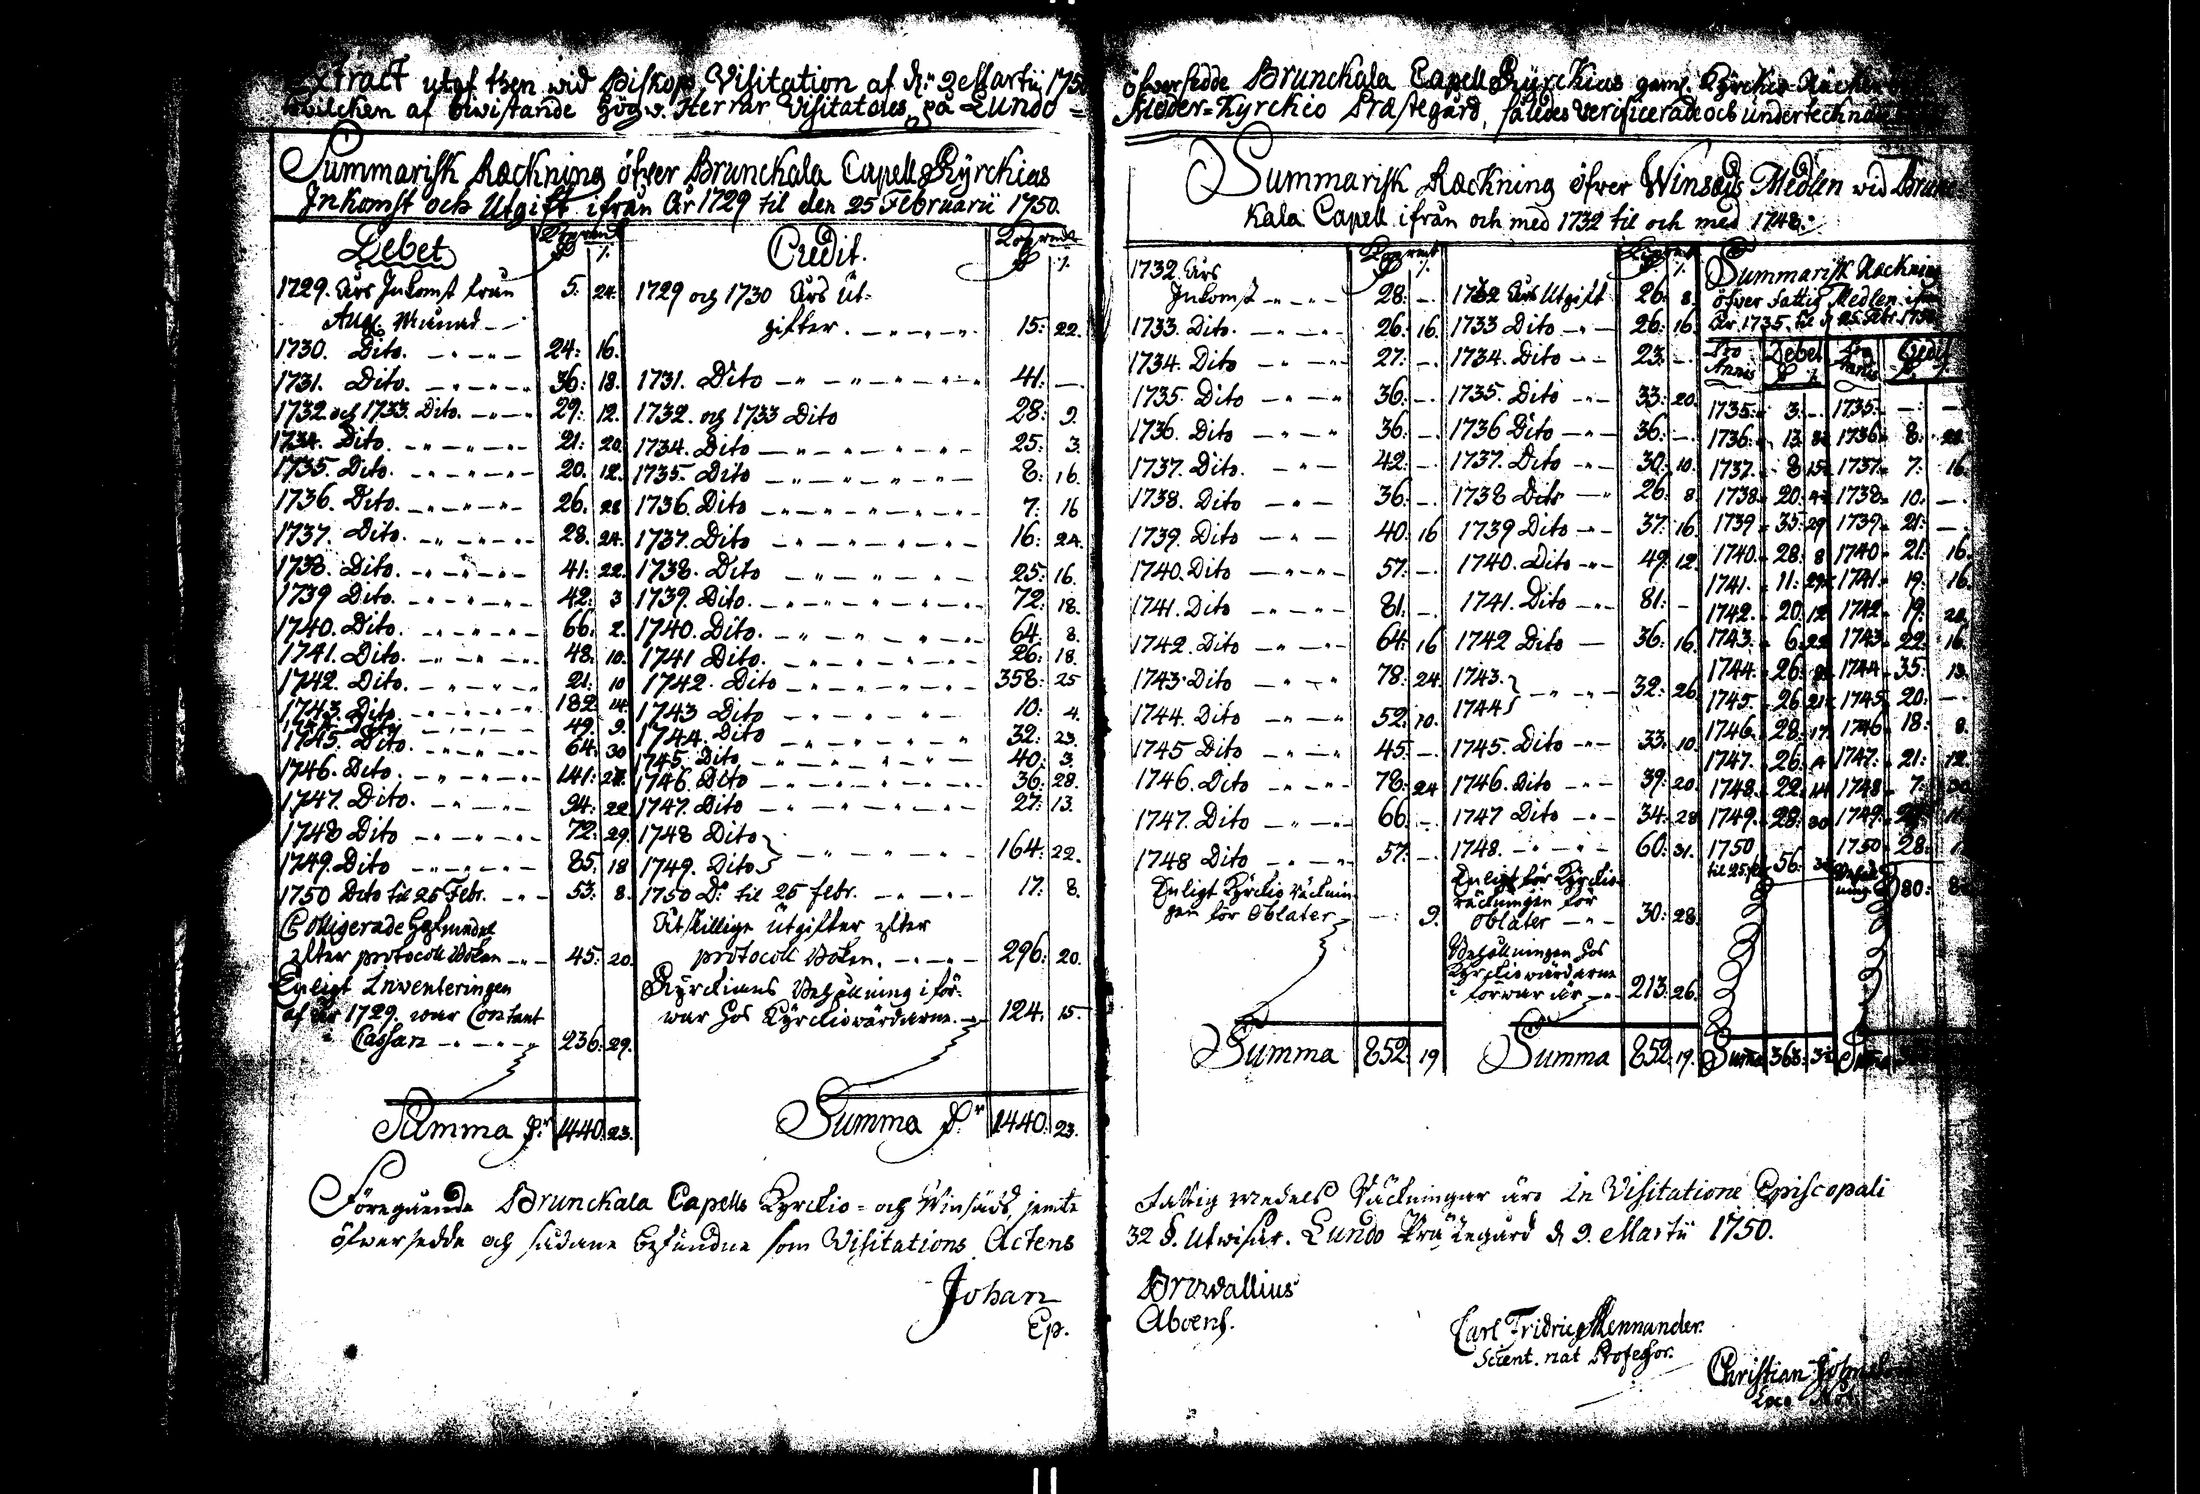 Extract utaf then wid Biskops Visitation af d: 9 Martii 1750
öfwersedde Brunckala Capells Kyrckias gaml. Kyrckio Räcken
hwilcken af biwistande högw. Herrar Visitatores på Lundo =
Moder-Kyrckio Præstegård, således verificerade och undertecknad
Summarisk Rackning öfver Brunckala Capells Kyrckias
Inkomst och Utgift ifrån år 1729 til den 25 Februarii 1750.
Debet
Credit.
1729. års Inkomst från 5: 24.
Aug. Månad
1730. Dito. 24: 16.
1731. Dito. 36: 18.
1732 och 1733. Dito. 29: 12.
1734. Dito. 21: 20.
1735. Dito. 20: 12.
1736. Dito. 26: 28
1737. Dito. 28: 24.
1738. Dito. 41: 22.
1739 Dito. 42: 3
1740. Dito. 66: 2.
1741. Dito. 48: 10.
1742. Dito. 21: 10
1743. Dito 182: 14.
49: 9.
1745. Dito. 64: 30
1746. Dito. 141:
1747. Dito. 94: 22
1748 Dito 72: 29.
1749. Dito 85: 18
1750 Dito til 25 Febr. 53: 8.
Colligerade
efter protocoll Boken 45: 20.
Enligt Inwenteringen
af år 1729. war Contant
i Cassan 236: 29.
Summa 1440: 23.
1729 och 1730 års Ut-
gifter. 15: 22.
1731. Dito 41: —
1732. och 1733 Dito 28: 9.
1734. Dito 25: 3.
1735. Dito 8: 16.
1736. Dito 7: 16
1737. Dito 16: 24.
1738. Dito 25: 16.
1739. Dito. 72: 18.
1740. Dito. 64: 8.
1741 Dito. 26: 18.
1742. Dito 358: 25
1743 Dito 10: 4.
1744. Dito 32: 23.
1745. Dito 40: 3.
1746. Dito 36: 28.
1747. Dito 27: 13.
1748 Dito
1749. Dito 164: 22.
1750 D.o til 25 febr. 17: 8.
Åtskillige Utgifter efter
protocoll Boken. 296: 20.
Kyrckians Behållning i för-
war hos Kyrckiowärdarne. 124: 15.
Summa 1440: 23.
Föregående Brunckala Capells Kyrckio- och Winsäds jemte
öfwersedde och sådane befundne som Visitations Actens
Johan
Ep.
Summarisk Rackning öfver Winsäds Medlen wid Brunc
kala Capell ifrån och med 1732 til och med 1748.
1732. års
Inkomst 28: —
1733. Dito. 26: 16.
1734. Dito 27: —
1735. Dito 36: —
1736. Dito 36: —
1737. Dito. 42: —
1738. Dito 36: —
1739. Dito 40: 16
1740. Dito 57: —
1741. Dito 81: —
1742. Dito 64: 16
1743. Dito 78: 24
1744. Dito 52: 10.
1745 Dito 45: —
1746. Dito 78: 24
1747. Dito 66: —
1748 Dito 57: —
Enligt Kyrckio Räcknin-
gen för Oblater —: 9.
Summa 852: 19
1732 års Utgift 26: 8.
1733 Dito 26: 16.
1734. Dito 23: —
1735. Dito 33: 20.
1736 Dito 36: —
1737. Dito 30: 10.
1738 Dito 26: 8
1739 Dito 37: 16.
1740. Dito 49: 12.
1741. Dito 81: —
1742 Dito 36: 16
1743.
1744 32: 26
1745. Dito 33: 10.
1746. Dito 39: 20.
1747 Dito 34: 28
1748. 60: 31.
Enligt för Kyrckio-
räckningen för
Oblater 30: 28.
Behållningen hos
Kyrckiowärdarne
i förwar är 213: 26.
Summa 852: 19.
Summarisk Rackning
öfver Fattig Medlen ifrån
år 1735. til d 25 Febr. 1750
Pro Annis Debet Pro Annis Credit
1735. 3: — 1735. — —
1736. 13: 1736. 8:
1737. 8: 15 1737. 7: 16
1738. 20: 1738. 10: —
1739. 33: 29 1739. 21: —
1740. 28: 8 1740. 21: 16.
1741. 11: 1741. 19: 16
1742. 20: 12 1742. 19:
1743. 6: 22 1743. 22: 16.
1744. 26: 1744. 35: 13.
1745. 26: 21 1745. 20: —
1746. 28: 17. 1746 18: 8.
1747. 26: 1747. 21: 12.
1748. 22: 14 1748. 7:
1749. 28: 30 1749.
1750 56: 1750 28:
til 25 80:
Summa 363:
Fattig medels Räckningar äro In Visitatione Episcopali
32 §. Utwisar. Lundo Prästegård d 9. Martii 1750.
Browallius
Aboens.
Carl Fridric Mennander.
Scient. nat Professor.
Christian